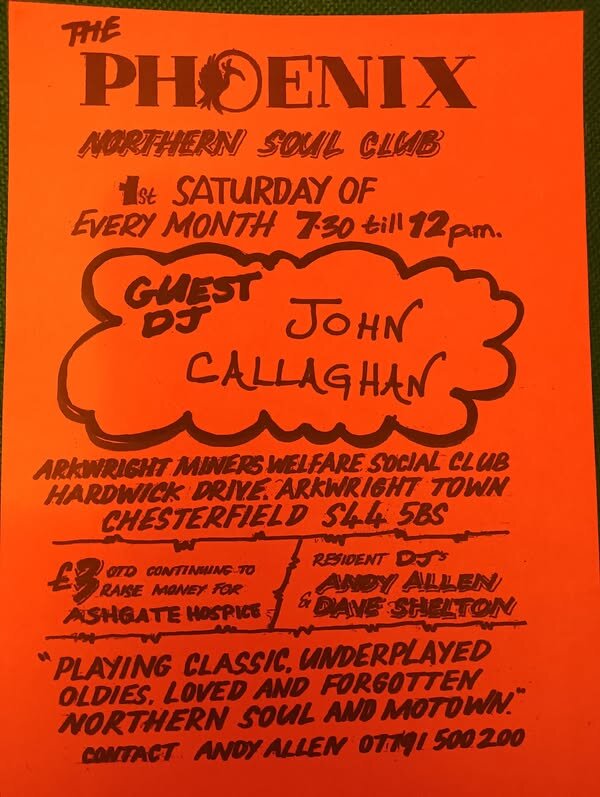 THE
PHOENIX
NORTHERN SOUL CLUB
1st SATURDAY OF
EVERY MONTH 7.30 till 12 p.m.
GUEST
DJ
JOHN
CALLAGHAN
ARKWRIGHT MINERS WELFARE SOCIAL CLUB
HARDWICK DRIVE. ARKWRIGHT TOWN
CHESTERFIELD S44 5BS
£3 OTD CONTINUING TO
RAISE MONEY FOR
ASHGATE HOSPICE
RESIDENT DJ's
ANDY ALLEN
& DAVE SHELTON
"PLAYING CLASSIC, UNDERPLAYED
OLDIES, LOVED AND FORGOTTEN
NORTHERN SOUL AND MOTOWN."
CONTACT ANDY ALLEN 07791 500 200